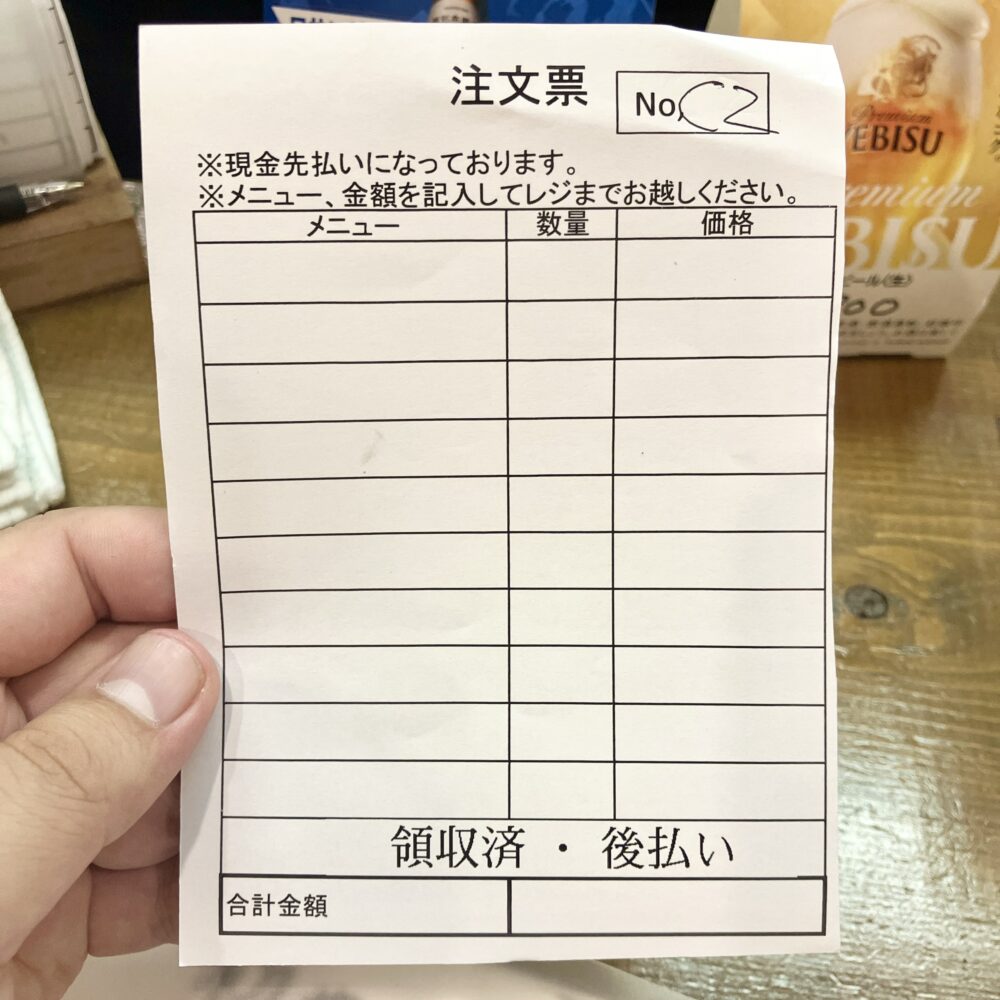 注文票
No, C2
※現金先払いになっております。
※メニュー、金額を記入してレジまでお越しください。
メニュー 数量 価格
領収済 ・ 後払い
合計金額
Premium
YEBISU
Premium
BISU
ビール(生)